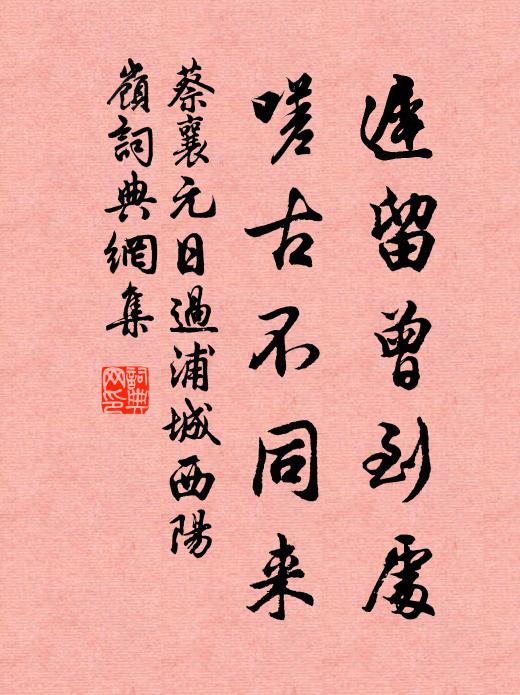 遲留曾到處
嗟古不同来
蔡襄元日過浦城西陽
嶺詞典網集
詞典
网印